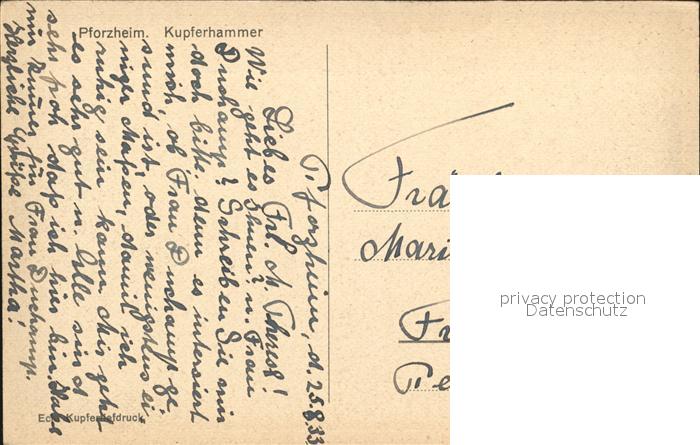 Pforzheim. Kupferhammer
Pforzheim, d. 25.8.33.
Liebes Frl. M. Theres!
Wie geht es Ihnen? u. Frau
Duchamp? Schreiben Sie mir
doch bitte, denn es intersiert
mich ob Frau Duchamp ge
sund ist, oder wenigstens ei,
niger Maßen, damit ich
ruhig sein kann. Mir geht
es sehr gut u. Alle sind
sehr froh daß ich hier bin. Habe
nur Kummer für Frau Duchamp.
Herzliche Grüße Martha!
Echt Kupfertiefdruck
Fr
Mari
Fr
privacy protection
Datenschutz